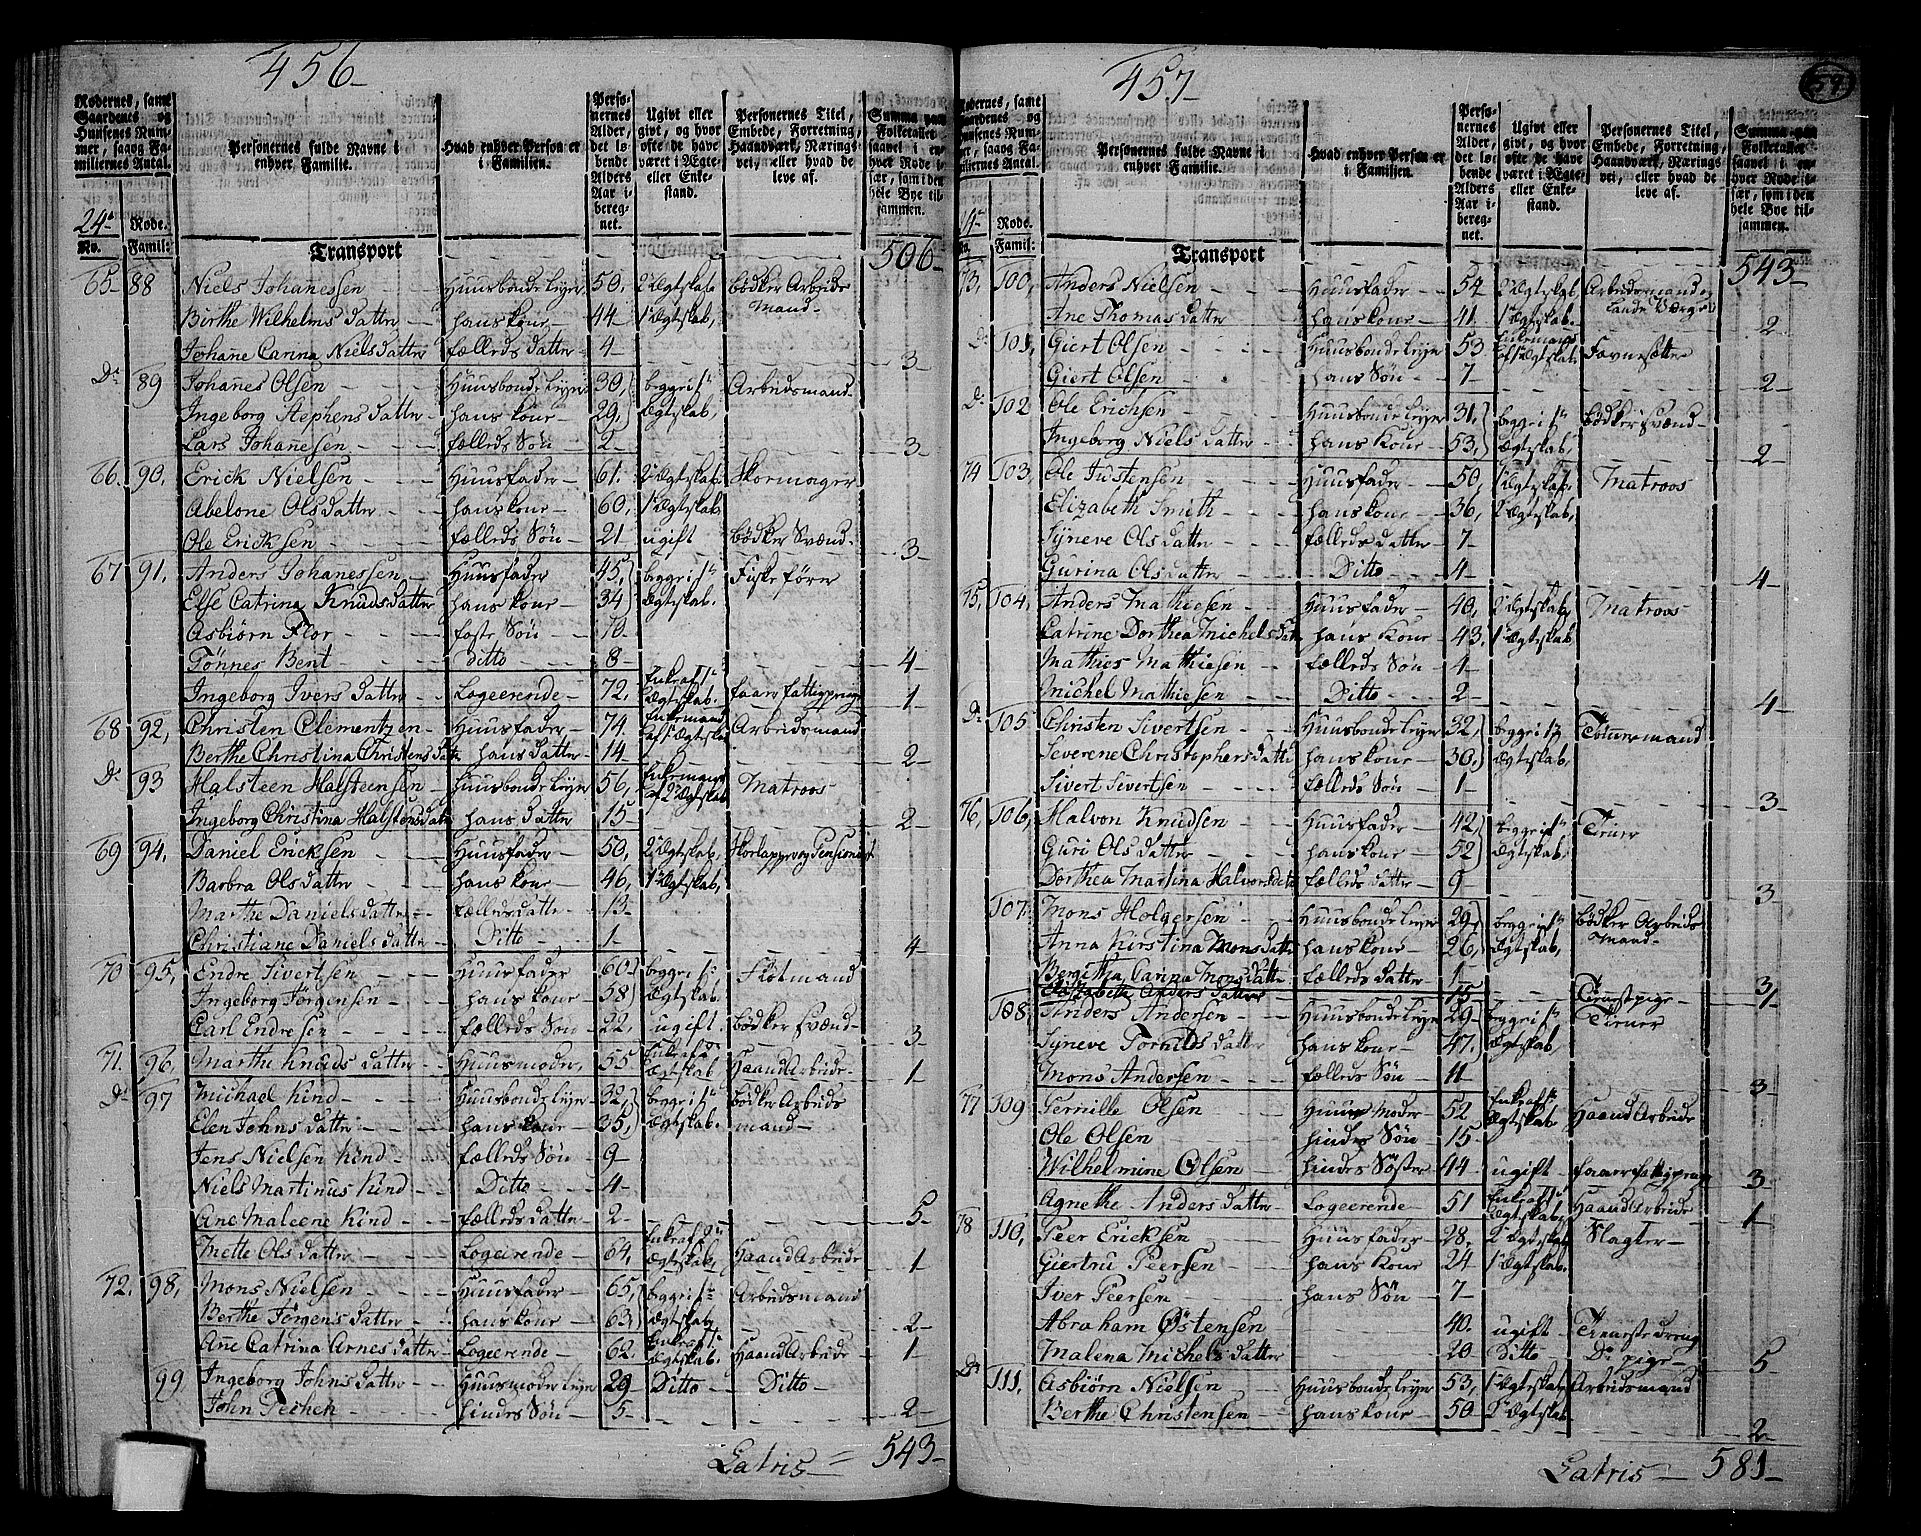 456
Rodernes, samt Gaardenes og Husenes Nummer, saavog Familliernes Antal.
Personernes fulde Navne i enhver Familie.
Hvad enhver Person er i Familien.
Personernes Alder, det løbende Alders Aar iberegnet.
Ugivt eller givt, og hvor ofte de have været i Ægte- eller Enkestand.
Personernes Titel, Embede, Forretning, Haandværk, Næringsvei, eller hvad de leve af.
Summa paa Folketallet saavel i enhver Rode især, som i den hele Bye tilsammen.
24de Rode.
No. Famil: Transport 506
65 88 Niels Johanessen Huusbonde Leyer 50, 2 Ægtskab Bödker Arbeids Mand
Birthe Wilhelms datter hans kone 44 1 Ægtskab,
Johane Carina Nielsdatter fælleds datter 4 3
Do 89 Johanes Olsen Huusbonde Leyer 30, begge i 1ste Arbeidsmand
Ingeborg Stephens datter hans kone 29, Ægtskab,
Lars Johanesen fælleds Sön 2 3
66. 90. Erick Nielsen Huusfader 61. 2 Ægtskab Skormager
Abelone Olsdatter hans kone 60, 1 Ægtskab
Ole Ericksen fælleds Sön 21 ugift Bödker Svænd 3
67 91, Anders Johanessen Huusfader 45, begge i 1ste Fiskefører
Else Catrina Knudsdatter hans kone 34 Ægtskab.
Asbiörn Flor foste Sön 10
Tönnes Bent Ditto 8 4
Ingeborg Ivers datter Logeerende 72, Enke af 1ste Ægtskab. 1
68 92, Christen Clementzen Huusfader 74. Enkemand af 1 Ægtskab Arbeidsmand
Berthe Christina Christens datter hans datter 14 2
Do 93 Halsteen Halsteensen Huusbonde Leyer 56, Enkemand af 2 Ægtskab Matroos
Ingeborg Christina Halstensdatter hans datter 15 2
69 94, Daniel Ericksen Huusfader 50, 2 Ægtskab, Skorlapper og Pensionist
Barbra Olsdatter hans kone 46, 1 Ægtskab,
Marthe Daniels datter fælleds datter 13
Christiane Daniels datter Ditto 1 4
70 95, Endre Sivertsen Huusfader 60 begge i 1ste Flotmand
Ingeborg Jörgensen hans kone 58 Ægtskab,
Carl Endresen fælleds Sön 22, ugift. Bödker svænd 3
71. 96, Marthe Knuds datter Huusmoder, 55 Enke af Ægtskab Haand Arbeide 1
Do 97 Michael Kind Huusbonde Leyer 32, begge i 1ste Bödker Arbeids
Elen Johns datter hans kone 35, Ægtskab. mand
Jens Nielsen Kind fælleds Sön 9
Niels Martinus Kind Ditto 4
Ane Maleene Kind fælleds datter 2 5
Mette Olsdatter Logeirende 64, Enke af 2 Ægtskab, Haand Arbeide 1
72. 98, Mons Nielsen Huusfader 65, begge i 1ste Arbeidsmand
Berthe Jörgens datter hans kone 63, Ægtskab 2
Ane Catrina Arnes datter Logeerende 62. Enke af 1. Ægtskab. Haand Arbeide 1
99 Ingeborg Johns datter Huusmoder Leyer 29 Ditto Ditto
John Techen hindes Sön 5 2
Latris 543
457
57
Rodernes, samt Gaardenes og Husenes Nummer, saavog Familliernes Antal.
Personernes fulde Navne i enhver Familie.
Hvad enhver Person er i Familien.
Personernes Alder, det løbende Alders Aar iberegnet.
Ugivt eller givt, og hvor ofte de have været i Ægte- eller Enkestand.
Personernes Titel, Embede, Forretning, Haandværk, Næringsvei, eller hvad de leve af.
Summa paa Folketallet saavel i enhver Rode især, som i den hele Bye tilsammen.
Rode.
Famil: Transport 543
73, 100, Anders Nielsen Huusfader 54 2 Ægtskab, Arbeidsmand og
Ane Thomas datter hans kone 41. 1 Ægtskab. 2
Do 101, Giert Olsen Huusbonde Leyer 53 Enkemand af 1 Ægtskab. Favnesætter
Giert Olsen hans Sön 7 2
Do 102 Ole Erichsen Huusbonde Leyer 31, begge i 1ste Bödker Svænd
Ingeborg Niels datter hans kone 53, Ægtskab, 2
74 103, Ole Justensen Huusfader 50, 1 Ægtskab. Matroos
Elizabeth Smith hans kone 36, 2 Ægtskab,
Syneve Ols datter fælleds datter 7
Gurina Olsdatter Ditto 4 4
75, 104, Anders Mathiesen Huusfader 40, 2 Ægtskab, Matroos
Catrine Dorthea Michelsdatter hans kone 43. 1 Ægtskab
Mathies Mathiesen fælleds Sön 4
Michel Mathiesen Ditto 2 4
Do 105 Christen Sivertsen Huusbonde Leyer 32, begge i 1ste Tömmermand
Severene Christophersdatter hans kone 30. Ægtskab,
Sivert Sivertsen fælleds Sön 1 3
76, 106, Halvon Knudsen Huusfader 42, begge i 1ste Tiener
Guri Ols datter hans kone 52 Ægtskab,
Dorthea Martina Halvorsdatter fælleds datter 9 3
107. Mons Holgersen Huusbonde Leyer 29, begge i 1ste Bödker Arbeids Mand
Anna Kirstina Monsdatter hans kone 26, Ægtskab,
Bergitha Carina Mons datter fælleds datter 1 3
Elizabeth Anders datter 15 Tienestpige 1
108 Anders Andersen Huusbonde Leyer 29 begge i 1ste Tiener
Syneve Tornils datter hans kone 47. Ægtskab,
Mons Andersen fælleds Sön 11 3
77 109 Pernille Olsen Huus Moder 52 Enke af 1ste Ægtskab Haand Arbeide
Ole Olsen hindes Sön 15
Wilhelmine Olsen hindes Söster 44 ugift 3
Agnethe Anders datter Logeerende 51 Enke af 1ste Ægtskab, Haand Arbeide 1
78 110, Peer Ericksen Huusfader 28. 2 Ægtskab Slagter
Giertru Peersen hans kone 24 1 Ægtskab.
Iver Peersen hans Sön 7
Abraham Östensen 40. ugift Tieneste dreng
Malena Michels datter 20 Ditto Do pige 5
Do 111, Asbiörn Nielsen Huusbonde Leyer 53, 1 Ægtskab Arbeidsmand
Berthe Christensen hans kone 50 2 Ægtskab. 2
Latris 581